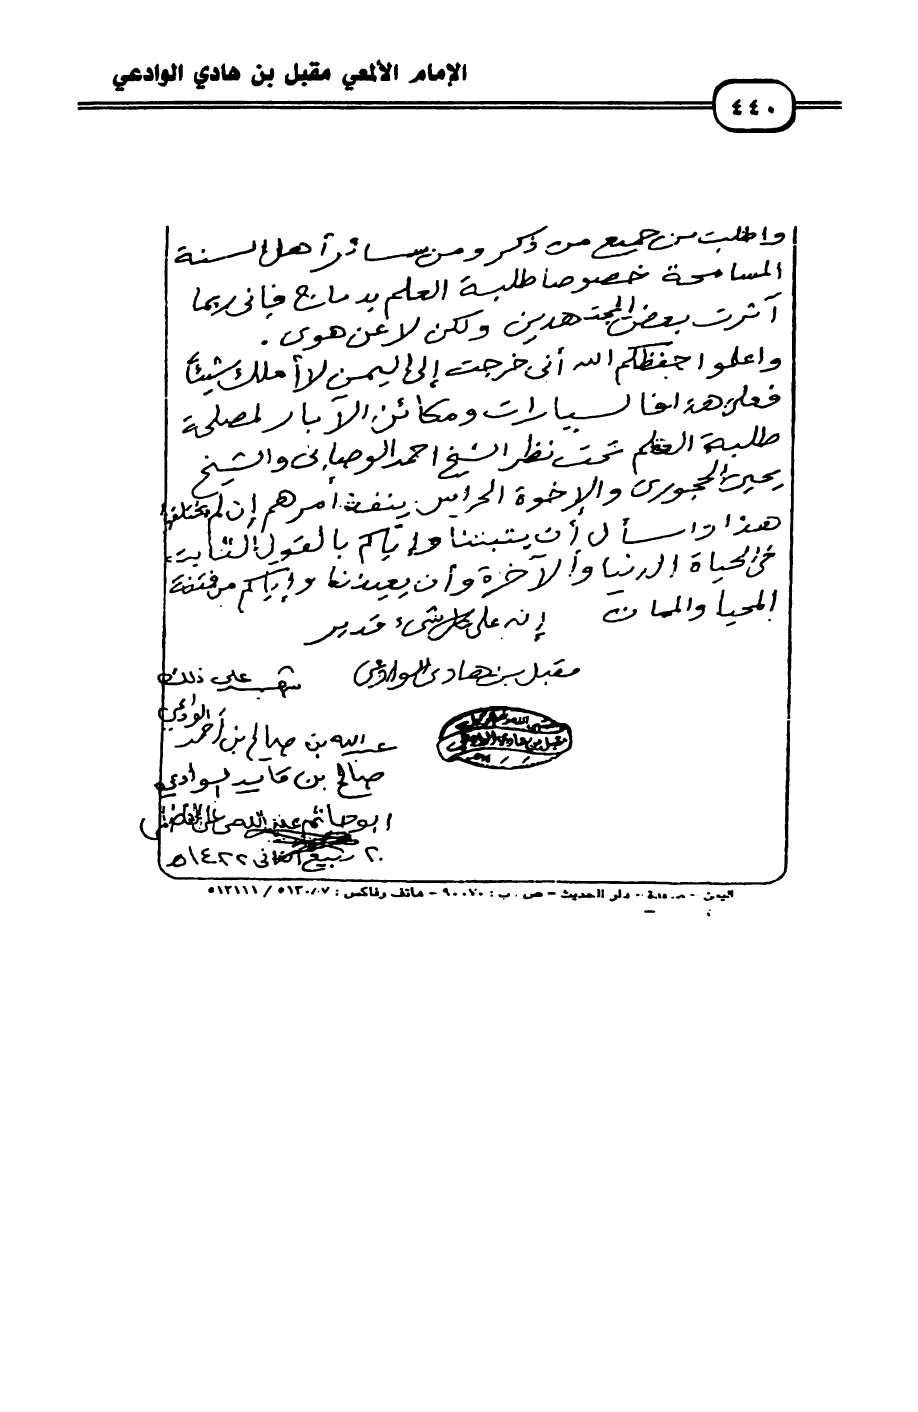 الإمام الألمعي مقبل بن هادي الوادعي
٤٤٠
واطلب من جميع من ذكر ومن سائر أهل السنة
المسامحة خصوصا طلبة العلم بدماج فإني ربما
آثرت بعض المجتهدين ولكن لا عن هوى .
واعلموا حفظكم الله أني خرجت إلى اليمن لا أملك شيئا
فعلى هذا فالسيارات ومكائن الآبار لمصلحة
طلبة العلم تحت نظر الشيخ احمد الوصابي والشيخ
يحيى الحجوري والإخوة الحراس ينفذ أمرهم إن لم يختلفوا
هذا واسأل أن يثبتنا وإياكم بالقول الثابت
في الحياة الدنيا والآخرة وأن يعيذنا وإياكم من فتنة
المحيا والممات إنه على كل شيء قدير
مقبل بن هادي الوادعي
شهد على ذلك
الوادعي
عبد الله بن صالح بن أحمد
صالح بن قايد الوادعي
ابو حاتم عبد الله علي الفاضلي
٢٠ ربيع الثاني ١٤٢٢ه
مقبل بن هادي الوادعي
اليمن - - دار الحديث - ص . ب : ٩٠٠٧٠ - هاتف وفاكس : / ٥١٢١١١